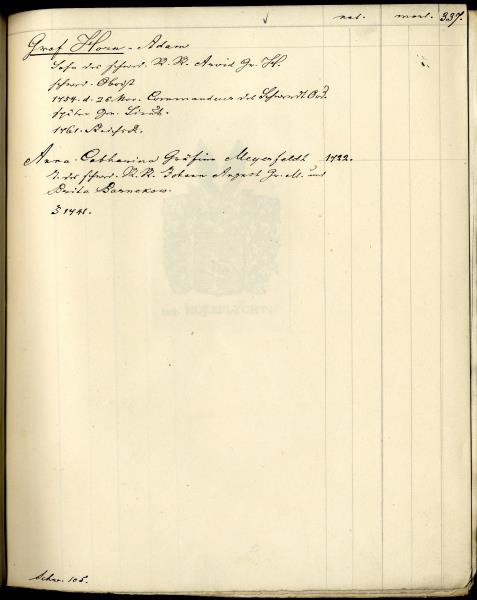 nat. mort. 337.
Graf Horn - Adam
Sohn des schwed. R. R. Arvid Gr. H.
schwed. Obrist
1754. d. 26 Nov. Commandeur des Schwerdt Ord.
später Gen. Lieut.
1761. Reichsr.
Anna Catharina Gräfin Meyerfeldt 1722.
T. des schwed. R. R. Johann August Gr. M. und
Brita Barnekow.
1741.
Schw. 105.